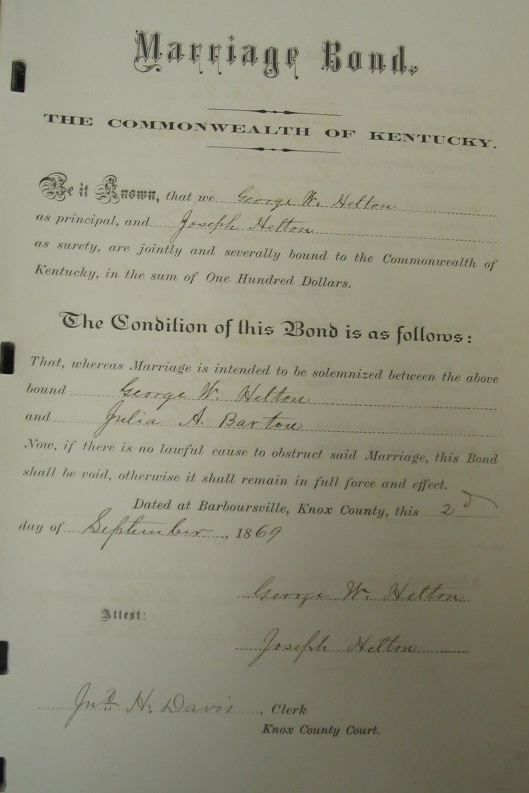 Marriage Bond.
THE COMMONWEALTH OF KENTUCKY.
Be it Known, that we George W. Helton
as principal, and Joseph Helton
as surety, are jointly and severally bound to the Commonwealth of
Kentucky, in the sum of One Hundred Dollars.
The Condition of this Bond is as follows:
That, whereas Marriage is intended to be solemnized between the above
bound George W. Helton
and Julia A. Barton
Now, if there is no lawful cause to obstruct said Marriage, this Bond
shall be void, otherwise it shall remain in full force and effect.
Dated at Barboursville, Knox County, this 2d
day of September, 1869
George W. Helton
Attest:
Joseph Helton
Jno. H. Davis, Clerk
Knox County Court.